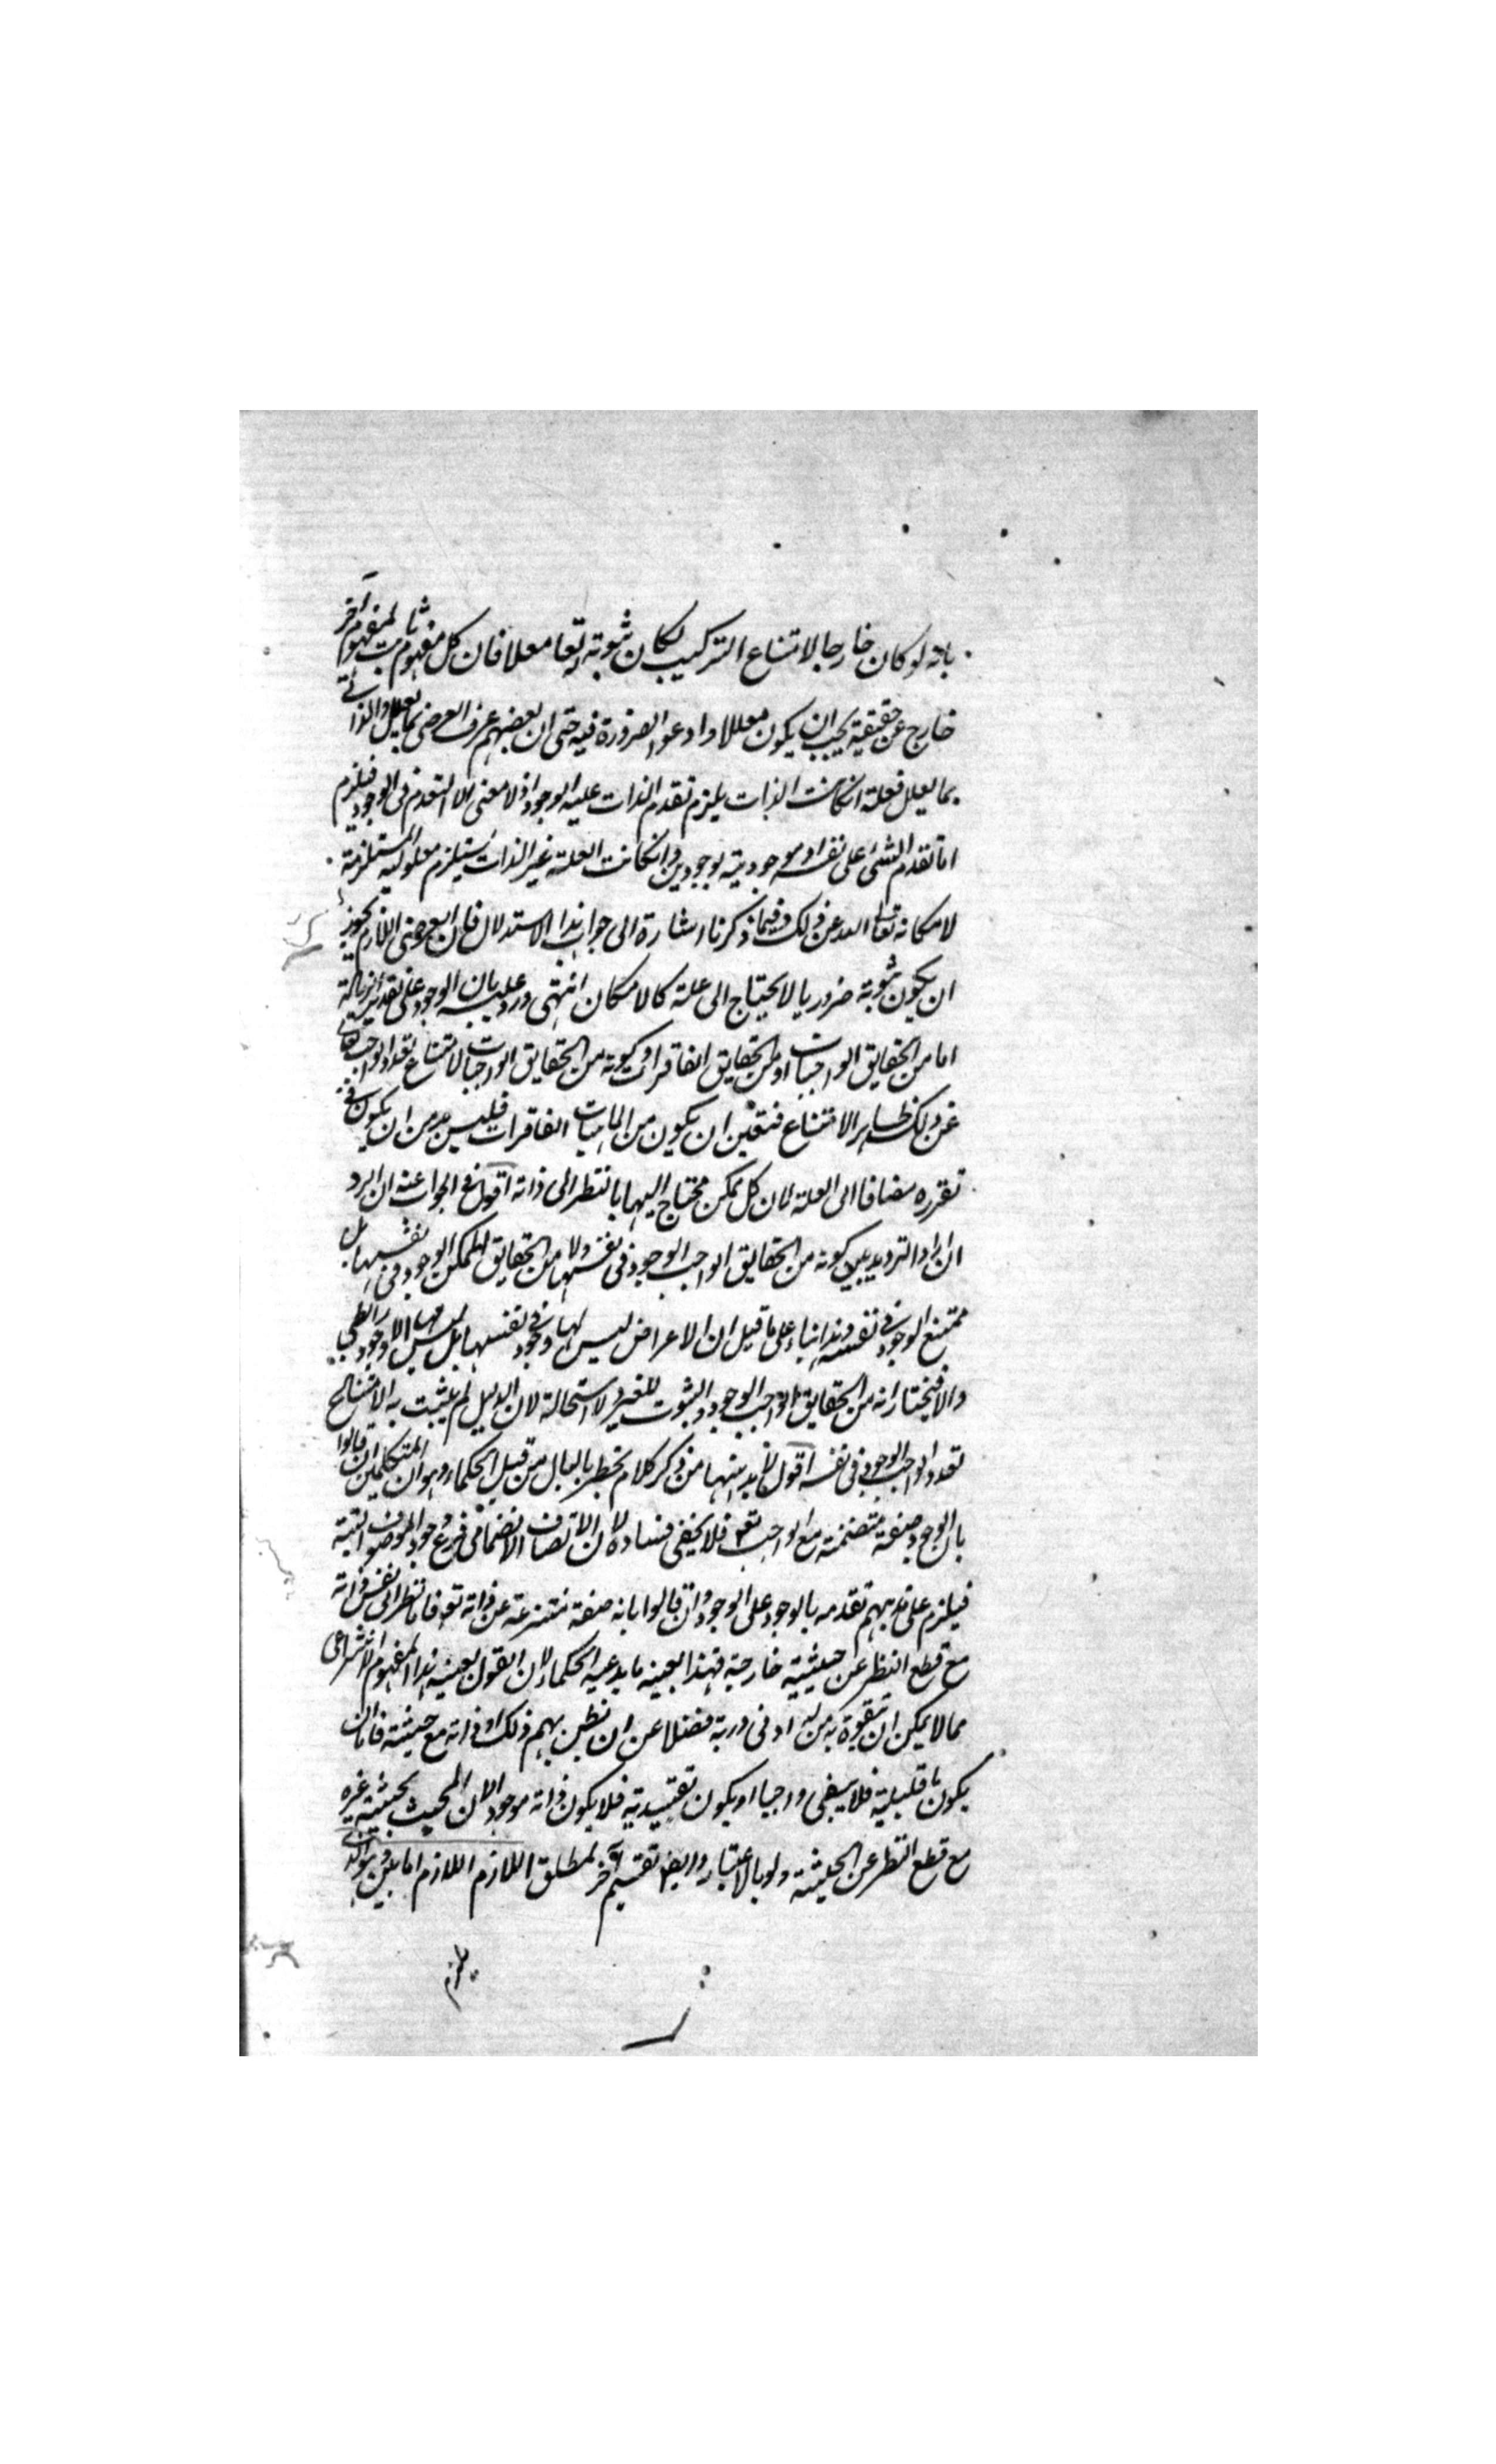 بانه لو كان خارجا لامتناع التركيب لكان ثبوته له تعا معللا فان كل مفهوم ثابت لمفهوم آخر
خارج عن حقيقته يجب ان يكون معللا وادعوا الضرورة فيه حتى ان بعضهم عرف العرضى بما يعلل والذاتى
بما لا يعلل فعلته انكانت الذات يلزم تقدم الذات عليه بالوجود اذ لا معنى الا التقدم فى الوجود فيلزم
اما تقدم الشئ على نفسه او موجوديته بوجودين وانكانت العلة غير الذات يستلزم معلوليه المستلزمة
لامكانه تعالى الله عن ذلك وفيما ذكرنا اشارة الى جواب هذا الاستدلال فان العرضى اللازم يجوز
ان يكون ثبوته ضروريا لا يحتاج الى علة كالامكان انتهى ورد عليه بان الوجود على تقدير الزيادة
اما من الحقايق الواجبات او من الحقايق الفاقرات وكونه من الحقايق الواجبات لامتناع تعدد الواجب تعالى
عن ذلك ظاهر الامتناع فتعين ان يكون من الماهيات الفاقرات فليس بد من ان يكون فى
تقرره مضافا الى العلة لان كل ممكن محتاج اليها بالنظر الى ذاته اقول فى الجواب عنه ان الراد
ان اراد الترديد بين كونه من الحقايق الواجب الوجود فى نفسها ولا من الحقايق الممكن الوجود فى نفسها بل
ممتنع الوجود فى نفسه وهذا بناء على ما قيل ان الاعراض ليس لها وجود فى نفسها بل ليس لها الا الوجود الرابطى
والا فنختار انه من الحقايق الواجب الوجود والثبوت للغير ولا استحالة لان الدليل لم يثبت به الا امتناع
تعدد الواجب الوجود فى نفسه اقول لا بد ههنا من ذكر كلام يخطر بالبال من قبل الحكماء وهو ان المتكلمين ان قالوا
بان الوجود صفة منضمة مع الواجب تعم فلا يخفى فساده لان الاتصاف الانضمامى فرع وجود الموصوف البتة
فيلزم على مذهبهم تقدمه بالوجود على الوجود وان قالوا بانه صفة منتزعة عن ذاته تع فاما بالنظر الى نفس ذاته
مع قطع النظر عن حيثية خارجة فهذا بعينه ما يدعيه الحكماء لان القول بعينية هذا المفهوم الانتزاعى
مما لا يمكن ان يتفوه به من له ادنى دربة فضلا عن ان يظن بهم ذلك او ذاته مع حيثية فاما ان
يكون تعليلية فلا يبقى واجبا او يكون تقييدية فلا يكون ذاته موجودا لان المحيث بحيثية غيره
مع قطع النظر عن الحيثية ولو بالاعتبار وايضا تقسيم آخر لمطلق اللازم اللازم اما بين وهو الذى
يلزم